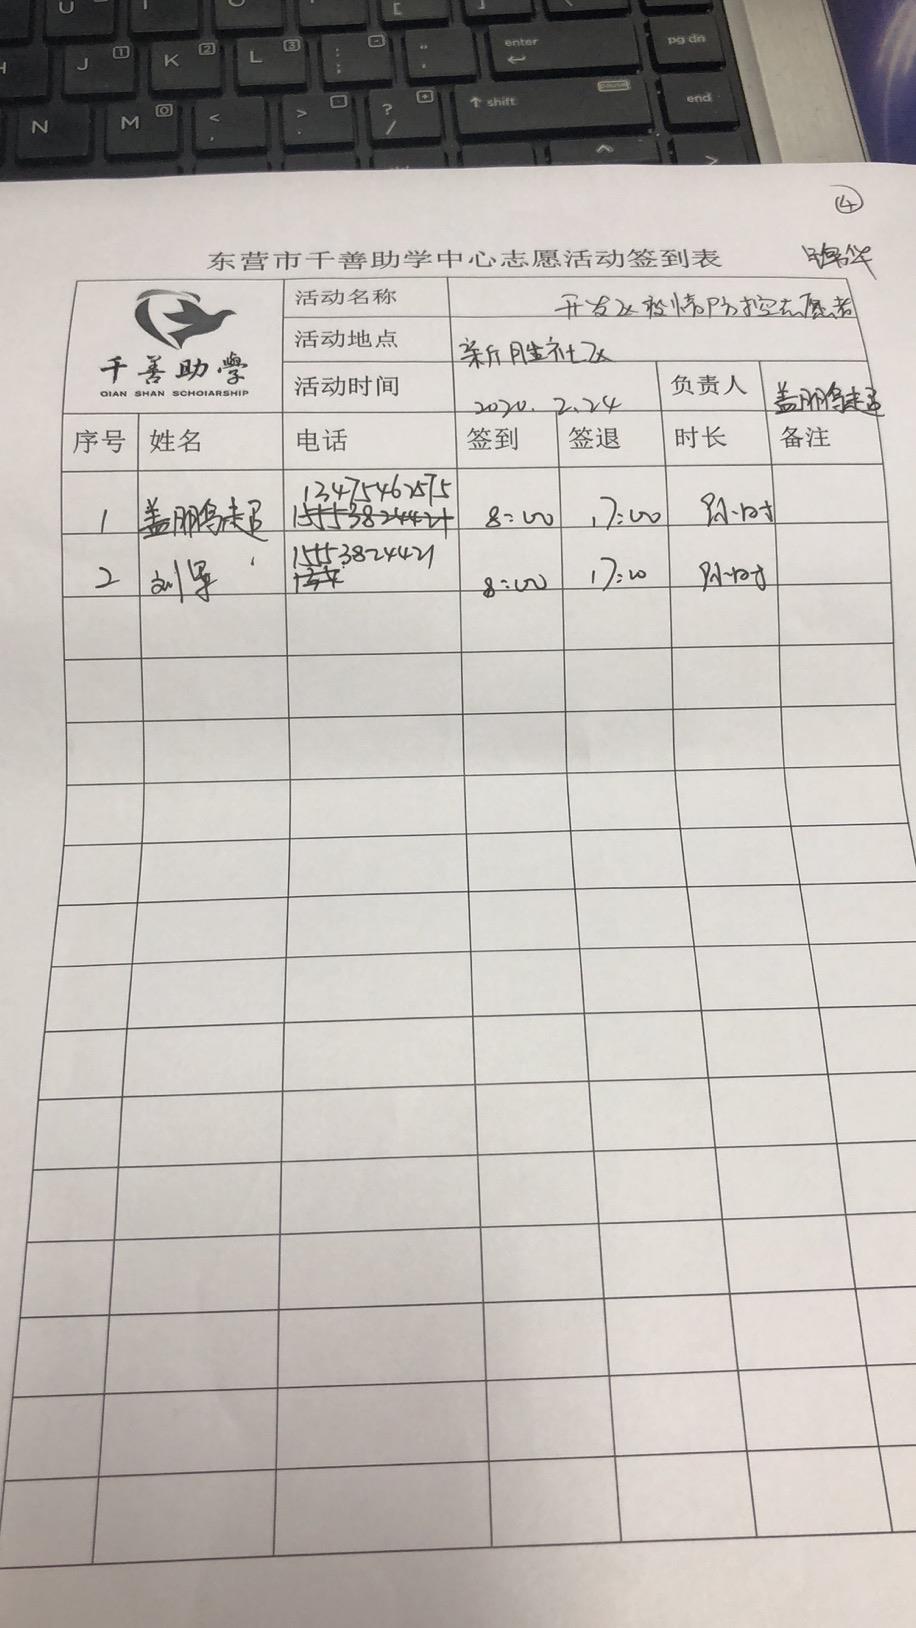 U
[
J 1
K 2
L 3
: ; -
" '
enter
pg dn
N
M 0
<
,
> .
? / +
shift
pause
end
④
东营市千善助学中心志愿活动签到表
千善助學
QIAN SHAN SCHOlARSHIP
活动名称 开发区疫情防控志愿者
活动地点 新胜社区
活动时间 2020.2.24 负责人 盖鹏
序号 姓名 电话 签到 签退 时长 备注
1 盖鹏 13475462575 8:00 17:00 小时
15553824421
2 刘军 15553824421 8:00 17:00 小时